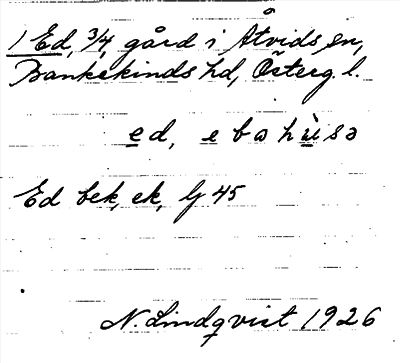 1 Ed, 3/4 gård i Åtvids sn,
Bankekinds hd, Österg. l.
ed, e bohùsə
Ed bek, ek, lj 45
N. Lindqvist 1926